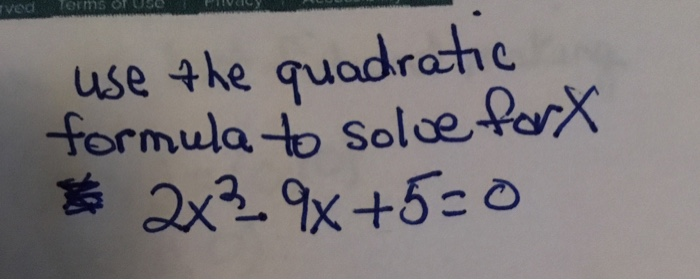 rved Terms of Use Privacy
use the quadratic
formula to solve for X
2x²- 9x+5=0